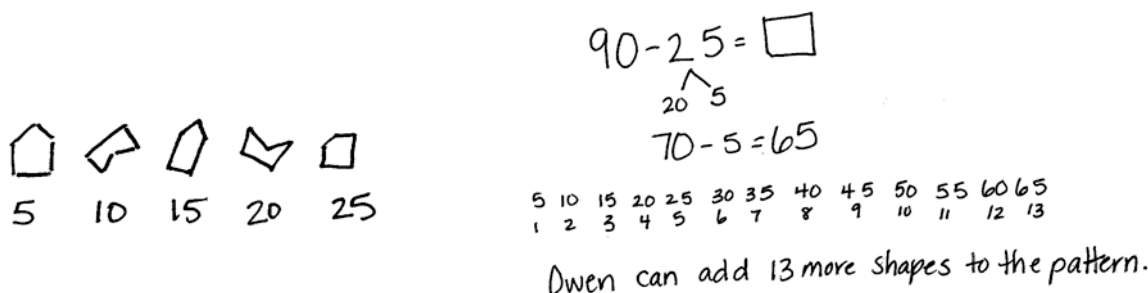 5 10 15 20 25
90 - 25 = □
20 5
70 - 5 = 65
5 10 15 20 25 30 35 40 45 50 55 60 65
1 2 3 4 5 6 7 8 9 10 11 12 13
Owen can add 13 more shapes to the pattern.